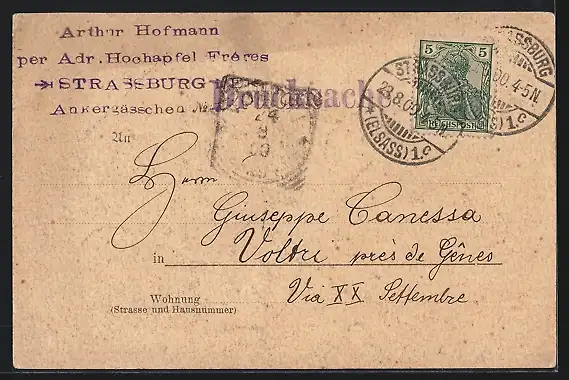 Arthur Hofmann
per Adr. Hochapfel Frères
➔ STRASSBURG
Ankergässchen
Drucksache
24
8
00
5
REICHSPOST
STRASSBURG
23.8.00
(ELSASS) 1.c
STRASSBURG
00. 4-5N.
1.c
An
Herrn
Giuseppe Canessa
in Voltri près de Gênes
Wohnung
(Strasse und Hausnummer)
Via XX Settembre